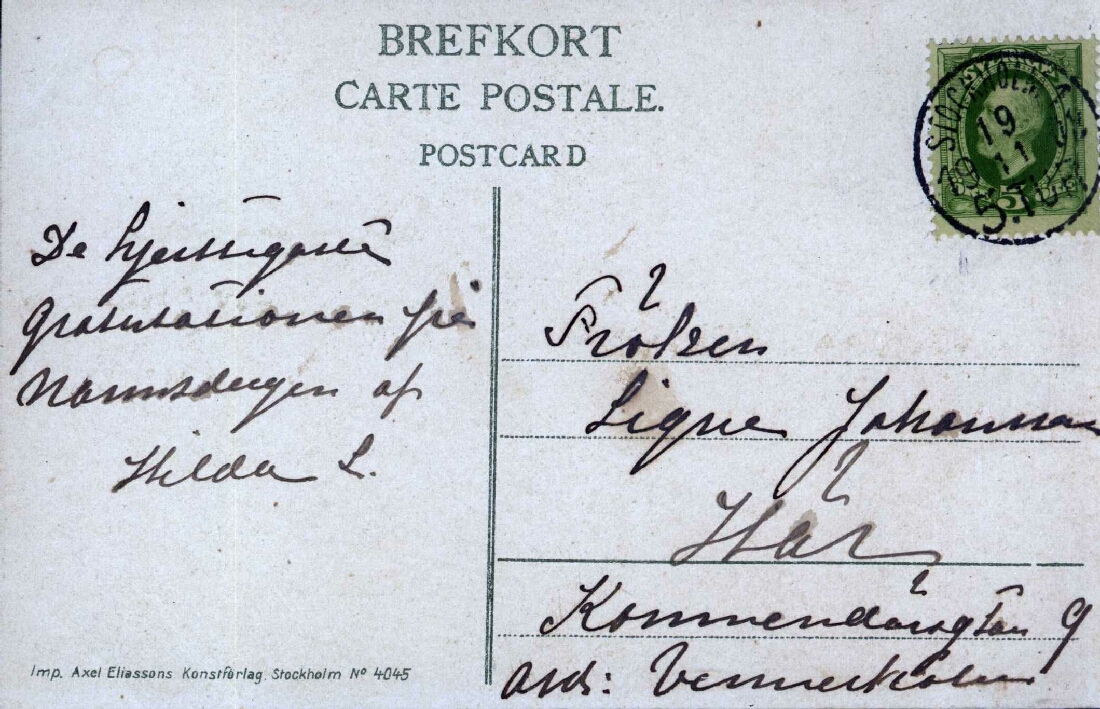 BREFKORT
CARTE POSTALE.
POSTCARD
STOCKHOLM 1
19
11
5.TUR
De hjertligaste
Gratulationer på
Namnsdagen af
Hilda L.
Fröken
Signe Johansson
Här
Kommendörsgatan 9
Imp. Axel Eliassons Konstförlag. Stockholm Nº 4045